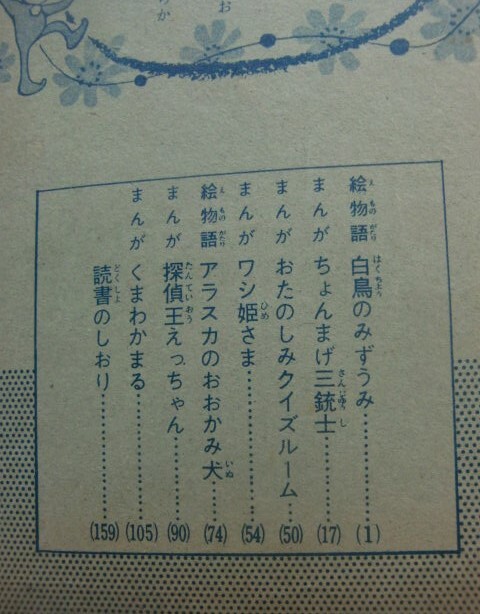 お
らか
絵物語 白鳥のみずうみ……(1)
まんが ちょんまげ三銃士……(17)
まんが おたのしみクイズルーム……(50)
まんが ワシ姫さま……(54)
絵物語 アラスカのおおかみ犬……(74)
まんが 探偵王えっちゃん……(90)
まんが くまわかまる……(105)
読書のしおり……(159)